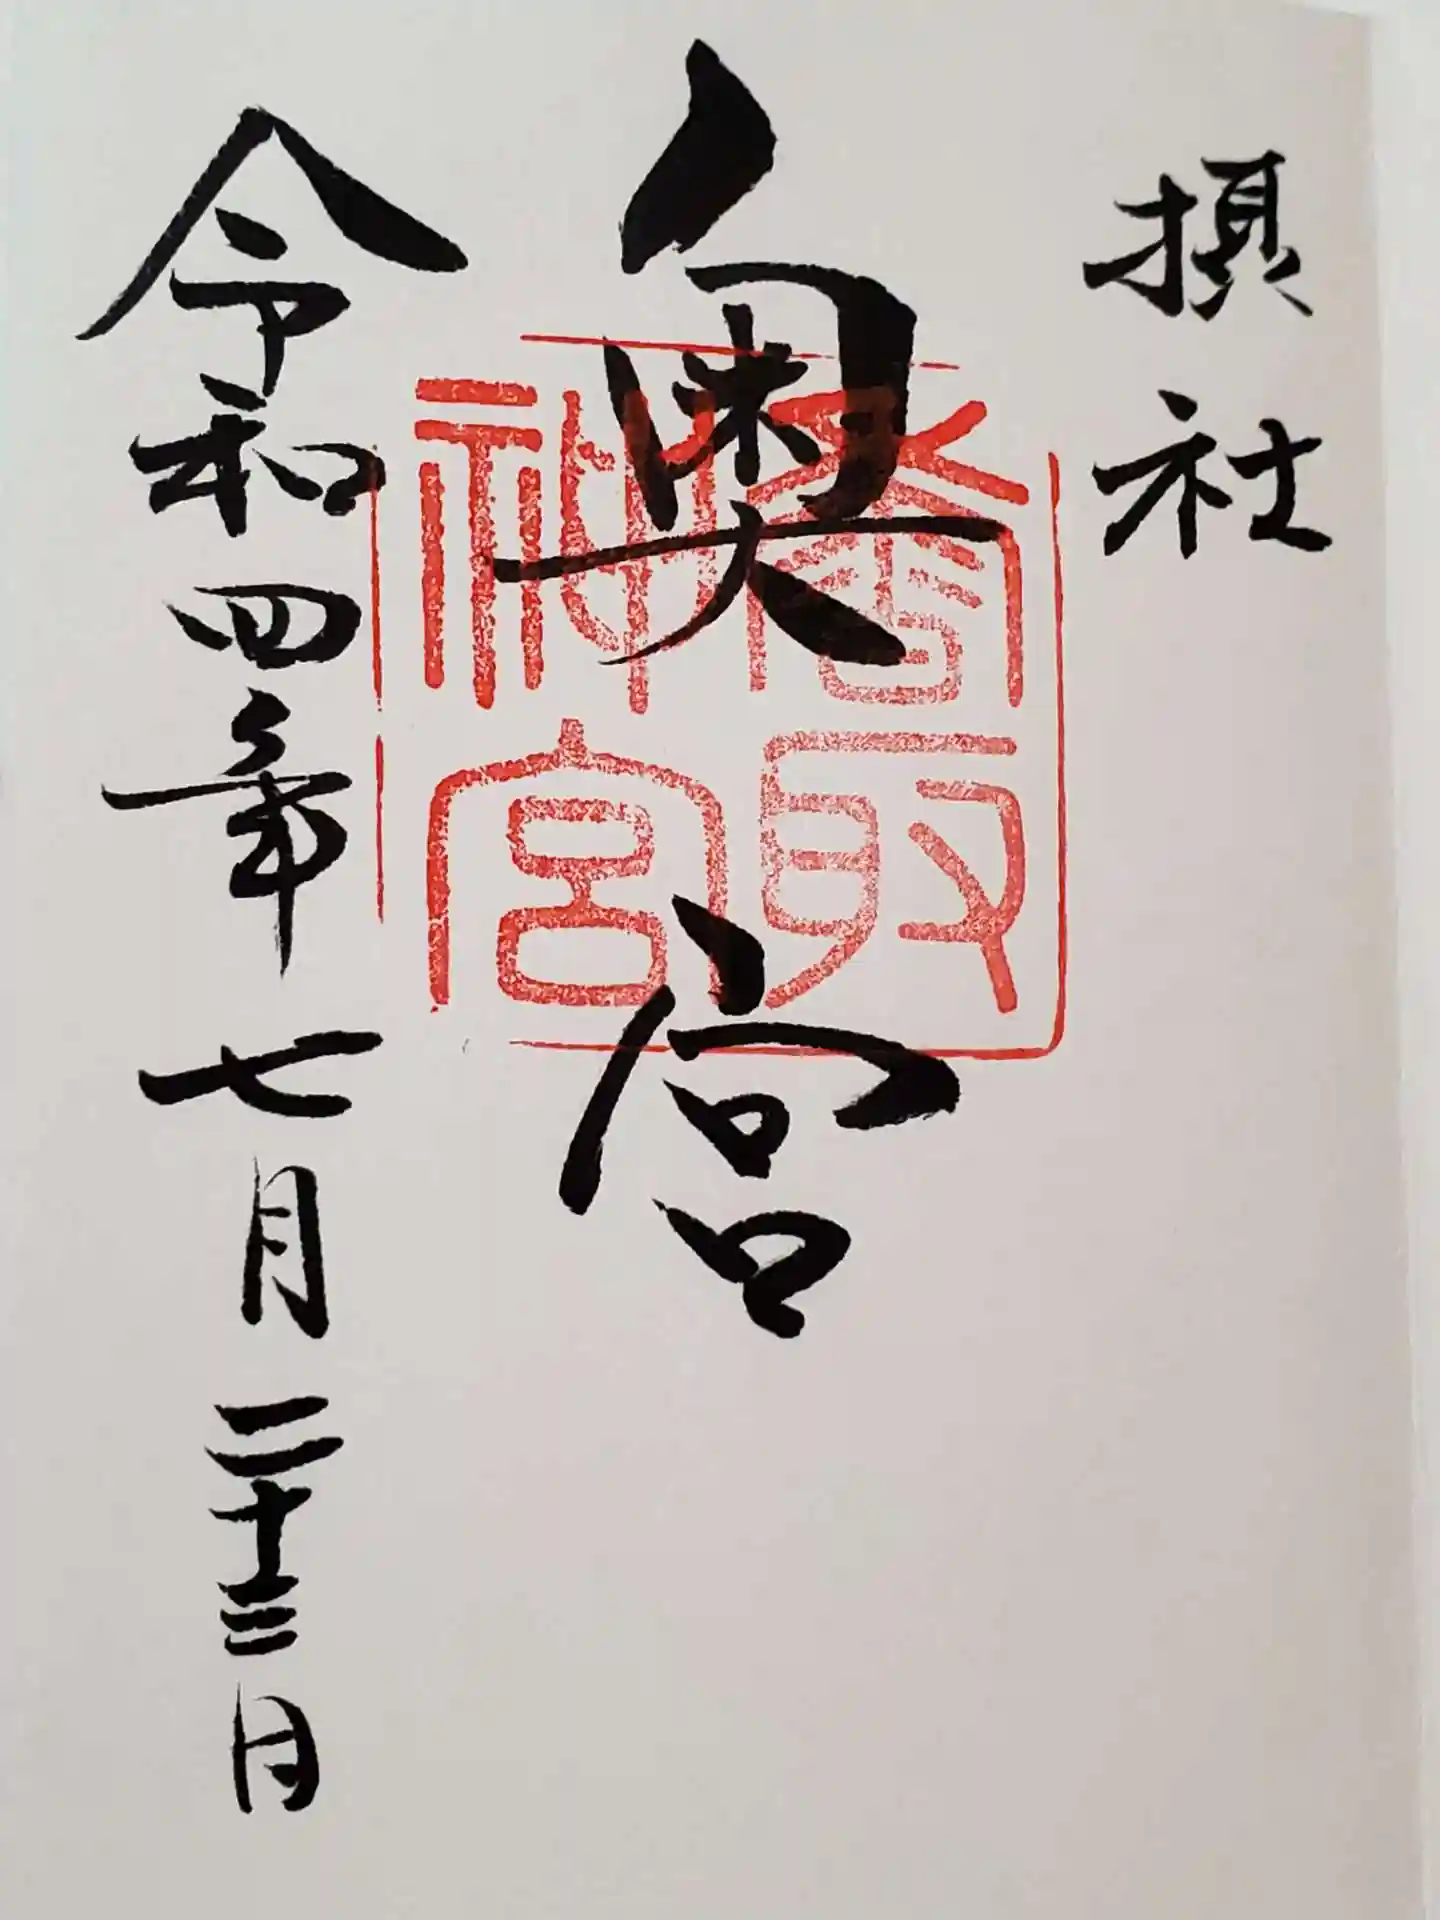 摂社
奥宮
香取
神宮
令和四年七月二十三日